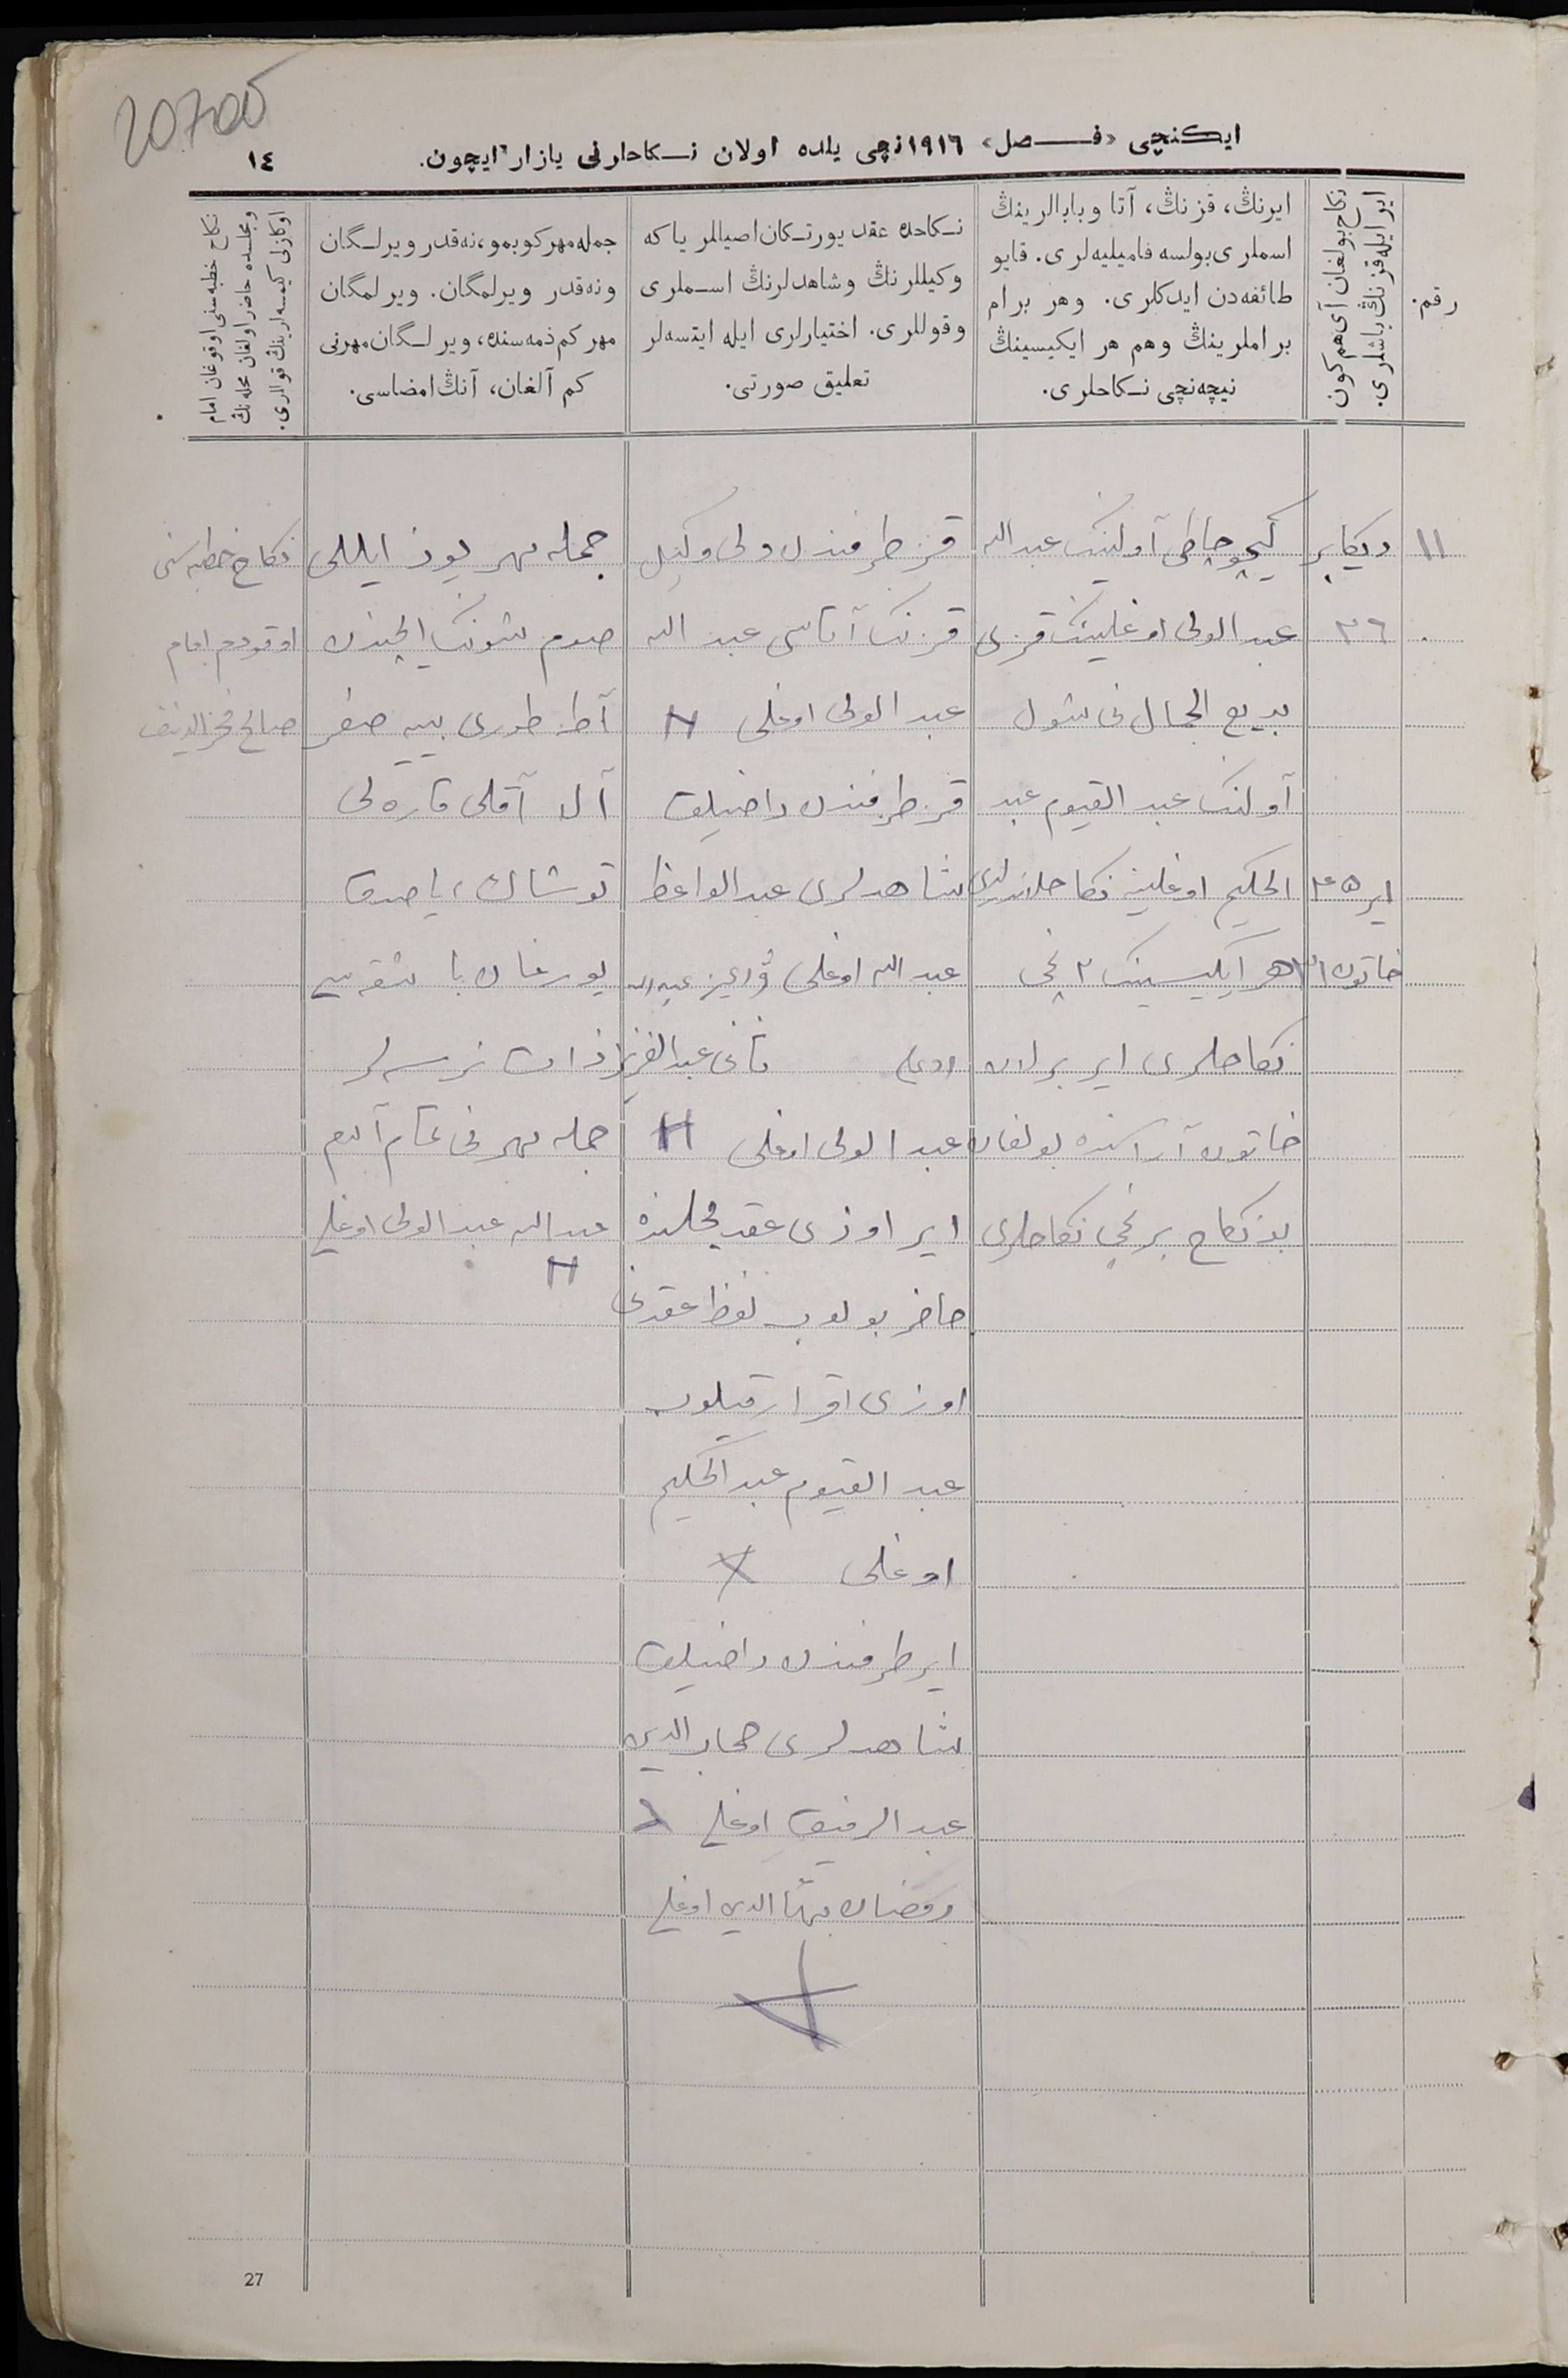 20700
ایکنچی «فـــصل» ١٩١٦نچی یلده اولان نـکاحلرنی یازار ایچون.
١٤
رقم.
نکاح بولغان آی هم کون
ایر ایله قزنڭ یاشلری.
ایرنڭ، قزنڭ، آتا وبابالرینڭ
اسملری بولسه فامیلیه‌لری. قایو
طائفه‌دن ایدکلری. وهر برام
براملرینڭ وهم هر ایکیسینڭ
نیچه‌نچی نـکاحلری.
نـکاحده عقد یورتـکان اصیللر یا که
وکیللرنڭ وشاهدلرنڭ اسـملری
وقوللری. اختیارلری ایله ایتسه‌لر
تعلیق صورتی.
جمله مهر کوبمو، نه‌قدر ویرلـگان
ونه‌قدر ویرلمگان. ویرلمگان
مهر کم ذمه‌سنده، ویرلـگان مهرنی
کم آلغان، آنڭ امضاسی.
نکاح خطبه‌سنی اوقوغان امام
ومجلسده حاضر اولغان محله‌نڭ
اوکازلی کیمسه‌لرینڭ قوللری.
١١
دیکابر
٢٦
ایر ٤٥
خاتون
کیچوچاطی آولینک عبدالله
عبدالولی اوغلینک قزی
بدیع الجمال نی شول
آولنک عبد القیوم عبد
الحکیم اوغلینه نکاحلاندیلر
هر ایکیسینک ٢ نچی
نکاحلری ایر برلان
خاتون آراسنده بولغان
بو نکاح برنچی نکاحلری
قز طرفندن ولی وکیل
قزنک آتاسی عبد الله
عبد الولی اوغلی H
قز طرفندن راضیلق
شاهدلری عبدالواعظ
عبد الله اوغلی
اوغلی ثانی عبدالعزیز
عبد الولی اوغلی H
ایر اوزی عقد مجلسنده
حاضر بولوب لفظ عقدنی
اوزی اقرار قیلوب
عبد القیوم عبدالحکیم
اوغلی X
ایر طرفندن راضیلق
شاهدلری جهاد الدین
عبد الرفیق اوغلی X
رمضان بهاالدین اوغلی
X
جمله مهر یوز ایللی
صوم شونک ایچنده
آط طوری بییه صغر
آلا آقلی قاره لی
توشاك، یاصدق
یورغان باشقه سی
ذات نرسه لر
جمله مهر نی تمام آلدم
عبدالله عبد الولی اوغلی
H
نکاح خطبه سنی
اوقودم امام
صالح فخرالدینف
27